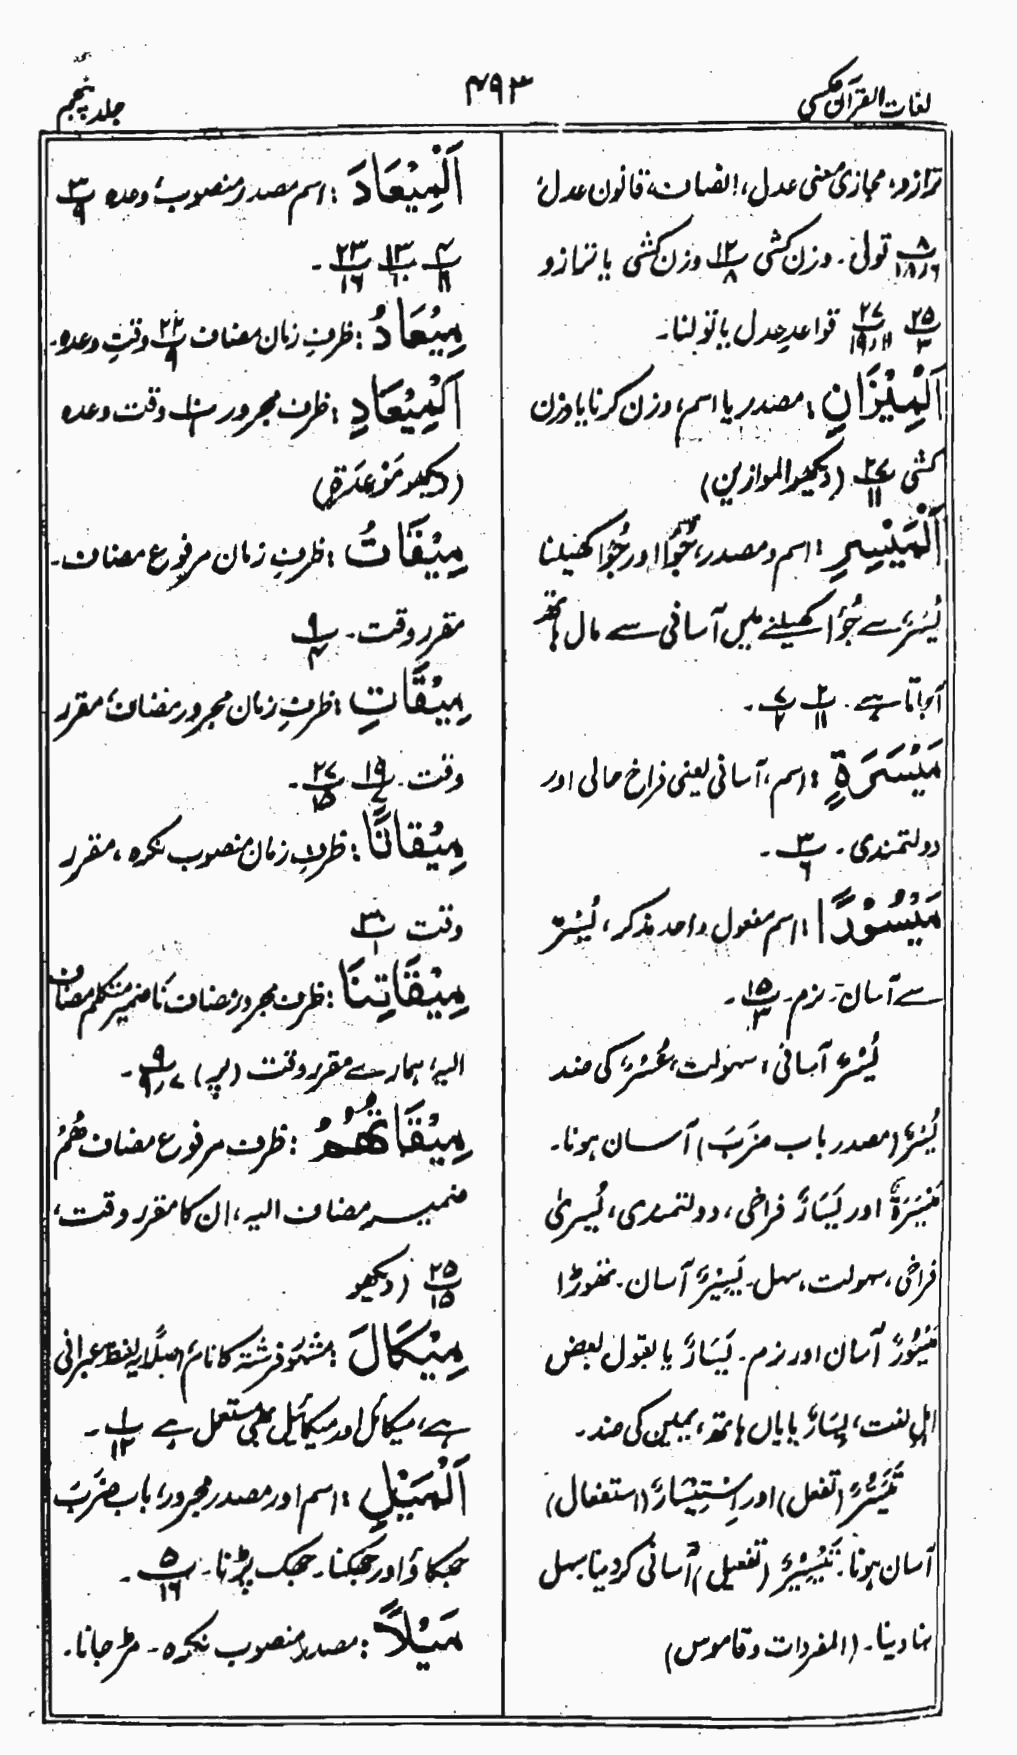 لغات القرآن عکسی
۴۹۳
جلد پنجم
ترازو، مجازی معنی عدل، انصاف، قانون عدل،
۸/۱۸،۶ تول۔ وزن کشی ۱۲/۸ وزن کشی یا ترازو
۲۵/۳ ۲۷/۱۹،۱۱ قواعدِ عدل یا تولنا۔
اَلْمِیْزَانِ: مصدر یا اسم، وزن کرنا یا وزن
کشی ۲۷/۱۱ (دیکھو الموازین)
اَلْمَیْسِرِ: اسم و مصدر، جُوَّا اور جُوَّا کھیلنا
یُسْرٌ سے جُوَّا کھیلنے میں آسانی سے مال ہاتھ
آجاتا ہے۔ ۲/۱۱ ۷/۲۔
مَیْسَرَةٍ: اسم، آسانی یعنی فراخ حالی اور
دولتمندی۔ ۳/۶۔
مَیْسُوْرًا: اسم مفعول واحد مذکر، یُسْرٌ
سے آسان۔ نرم۔ ۱۵/۳۔
یُسْرٌ آسانی، سہولت، عُسْرٌ کی ضد
یُسْرٌ (مصدر باب ضَرَبَ) آسان ہونا۔
مَیْسَرَةٌ اور یَسَارٌ فراخی، دولتمندی، یُسریٰ
فراخی، سہولت، سہل۔ یَسِیْرٌ آسان۔ تھوڑا
مَیْسُوْرٌ آسان اور نرم۔ یَسَارٌ یا بقول بعض
اہلِ لغت، یِسَارٌ بایاں ہاتھ، یمین کی ضد۔
تَیَسُّرٌ (تفعل) اور اِسْتِیْسَارٌ (استفعال)
آسان ہونا۔ تَیْسِیْرٌ (تفعیل) آسانی کر دینا سہل
بنا دینا۔ (المفردات و قاموس)
اَلْمِیْعَادَ: اسم مصدر منصوب، وعدہ ۳/۹
۴/۱۱ ۱۳/۱۰ ۲۳/۱۶۔
مِیْعَادُ: ظرفِ زمان مضاف ۲۲/۹ وقتِ وعدہ۔
اَلْمِیْعَادِ: ظرف مجرور ۱۰/۱ وقت وعدہ
(دیکھو مَوْعِدَةٍ)
مِیْقَاتُ: ظرفِ زمان مرفوع مضاف۔
مقرر وقت۔ ۹/۴
مِیْقَاتِ: ظرفِ زمان مجرور مضاف، مقرر
وقت۔ ۱۹/۷ ۲۷/۱۵۔
مِیْقَاتًا: ظرفِ زمان منصوب نکرہ، مقرر
وقت ۳۰/۱
مِیْقَاتِنَا: ظرف مجرور مضاف نَا ضمیر متکلم مضاف
الیہ، ہمارے مقرر وقت (پر) ۹/۹،۷۔
مِیْقَاتُهُمْ: ظرف مرفوع مضاف هُمْ
ضمیر مضاف الیہ، ان کا مقرر وقت،
۲۵/۱۵ (دیکھو
مِیْکَالَ: مشہور فرشتہ کا نام، اصلًا یہ لفظ عبرانی
ہے، میکائل اور میکائیل بھی مستعمل ہے ۱/۱۲۔
اَلْمَیْلِ: اسم اور مصدر مجرور، باب ضَرَبَ
جھکاؤ اور جھکنا۔ جھک پڑنا۔ ۵/۱۶۔
مَیْلًا: مصدر منصوب نکرہ۔ مڑ جانا۔